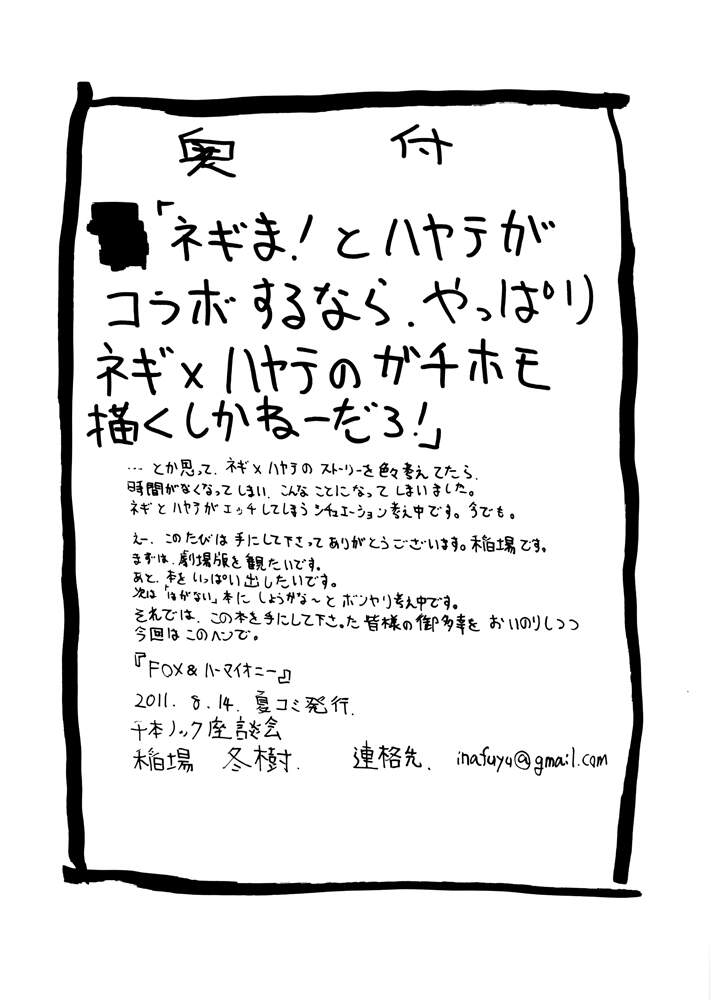 奥付
「ネギま!とハヤテが
コラボするなら、やっぱり
ネギ×ハヤテのガチホモ
描くしかねーだろ!」
… とか思って、ネギ×ハヤテの ストーリーを色々考えてたら、
時間がなくなってしまい、こんなことになってしまいました。
ネギとハヤテがエッチしてしまうシチュエーション考え中です。今でも。
えー、このたびは手にして下さってありがとうございます。稲場です。
まずは、劇場版を観たいです。
あと、本をいっぱい出したいです。
次は「はがない」本にしようかな〜とボンヤリ考え中です。
それでは、この本を手にして下さった皆様の御多幸を おいのりしつつ
今回はこのヘンで。
『FOX&ハーマイオニー』
2011. 8. 14. 夏コミ発行.
千本ノック座談会
稲場 冬樹. 連格先. inafuyu@gmail.com